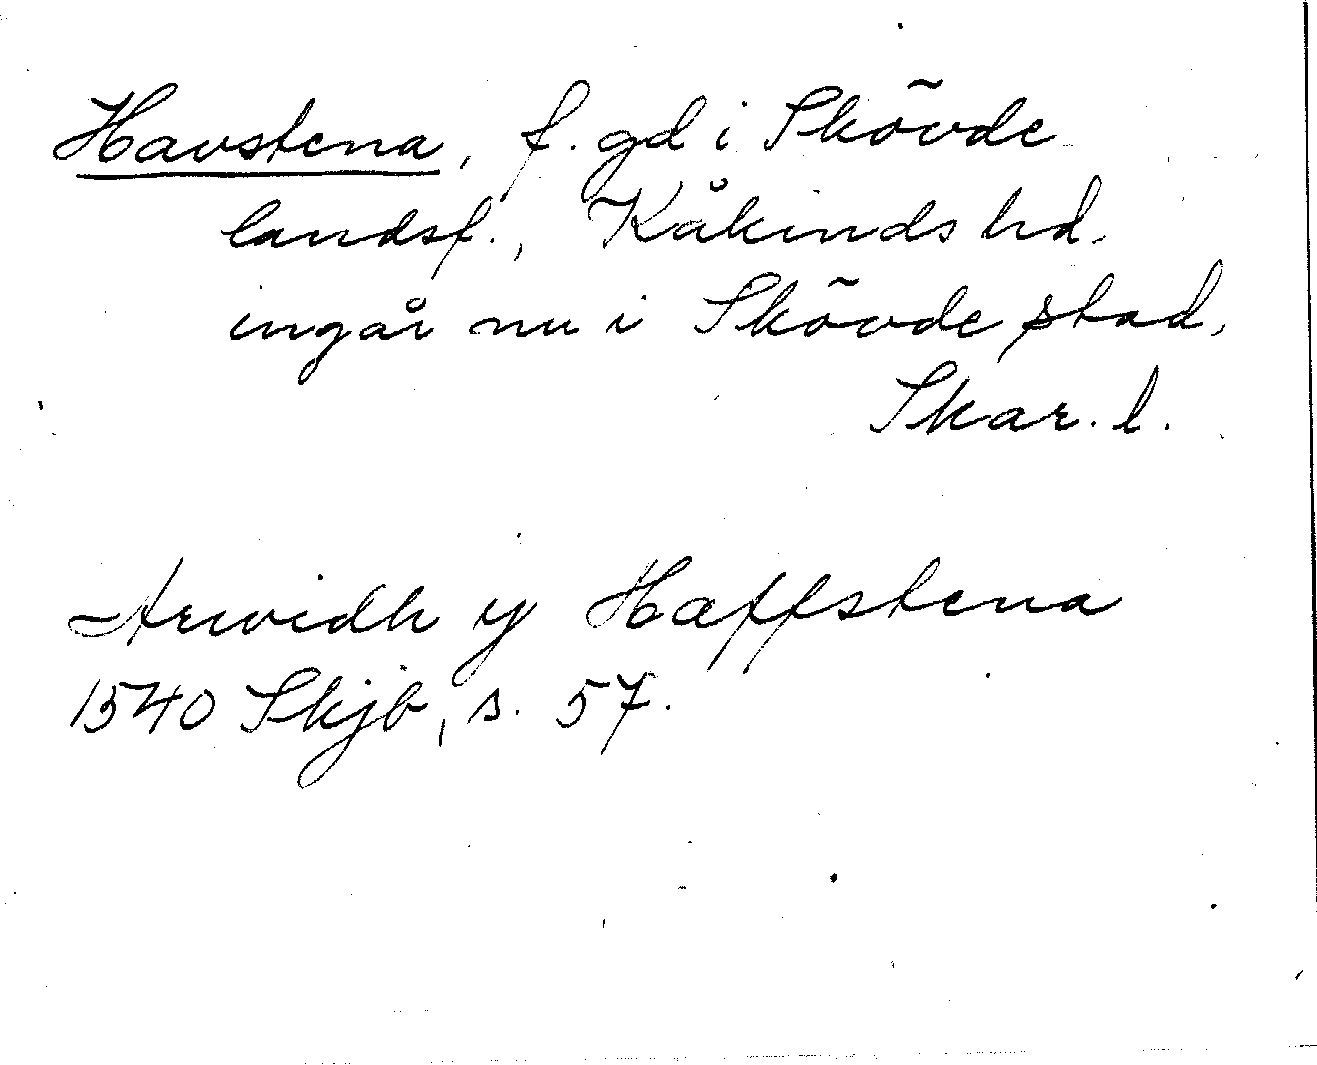 Havstena, f. gd i Skövde
landsf., Kåkinds hd.
ingår nu i Skövde stad,
Skar. l.
Arwidh y Haffstena
1540 Skjb, s. 57.